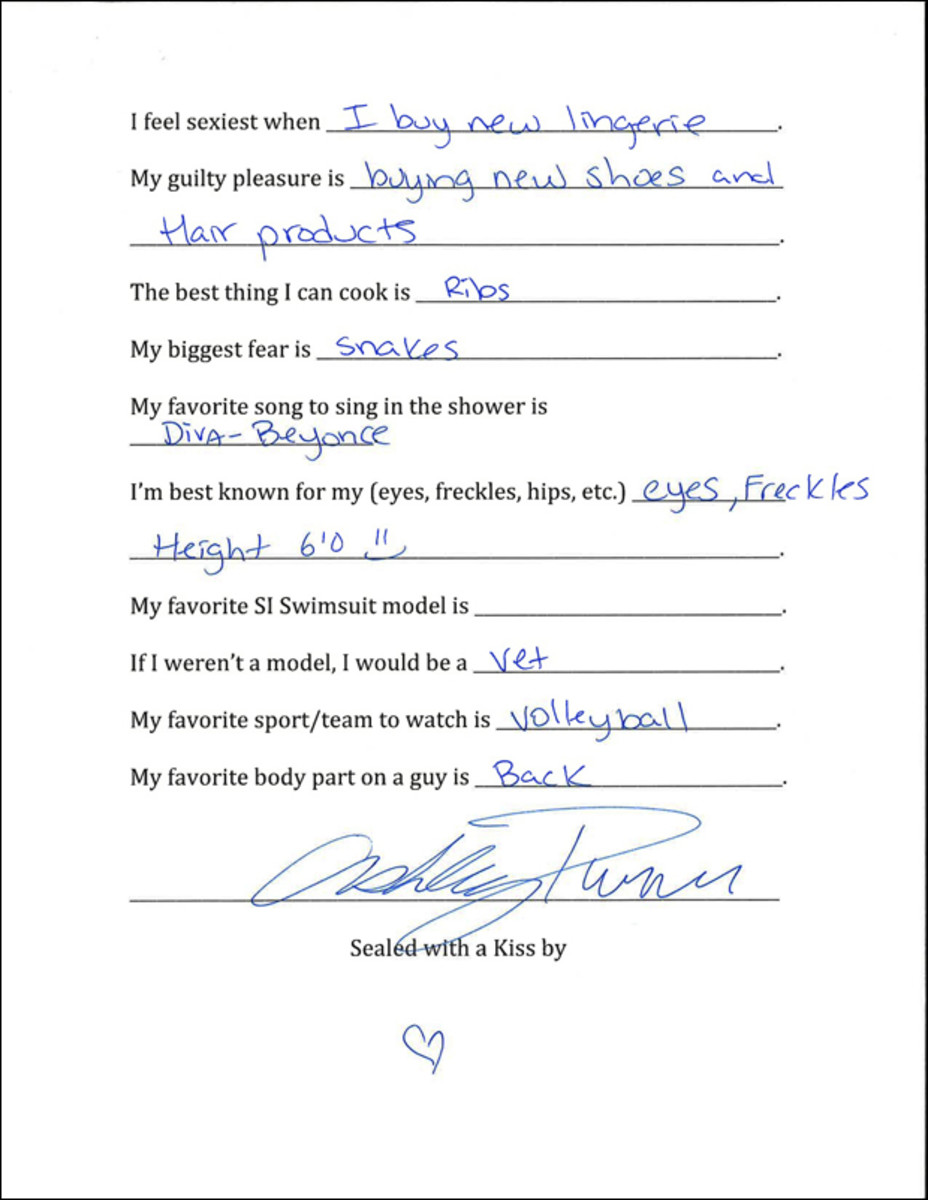 I feel sexiest when I buy new lingerie.
My guilty pleasure is buying new shoes and
Hair products.
The best thing I can cook is Ribs.
My biggest fear is snakes.
My favorite song to sing in the shower is
DivA- Beyonce
I'm best known for my (eyes, freckles, hips, etc.) eyes, Freckles
Height 6'0.
My favorite SI Swimsuit model is .
If I weren't a model, I would be a vet.
My favorite sport/team to watch is volleyball.
My favorite body part on a guy is Back.
Ashley
Sealed with a Kiss by